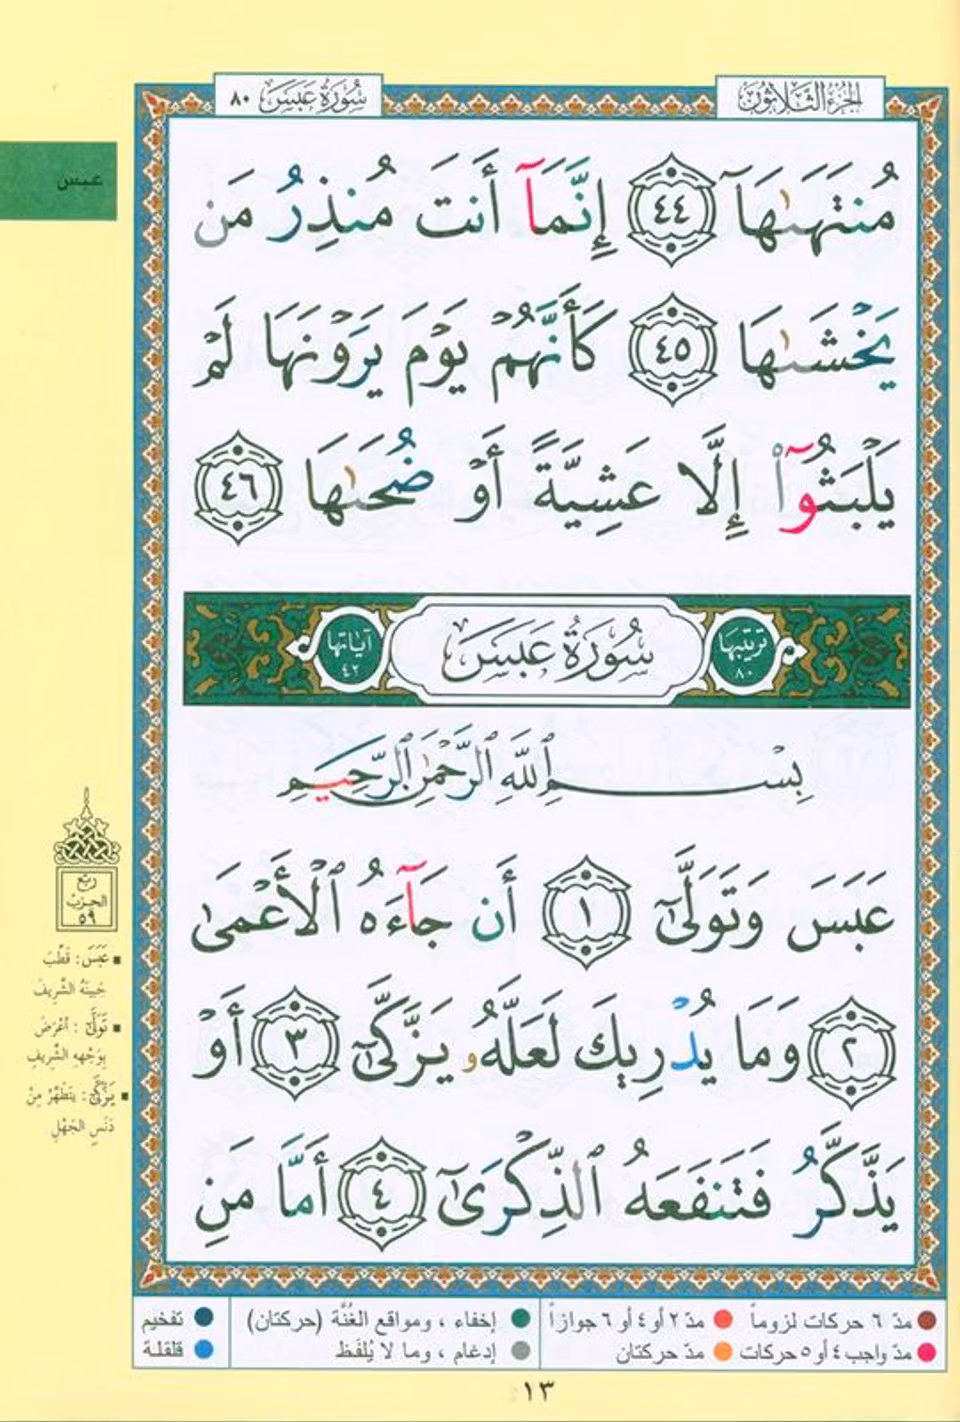 الجزء الثلاثون
سورة عبس ٨٠
عبس
مُنتَهَىٰهَآ ٤٤ إِنَّمَآ أَنتَ مُنذِرُ مَن
يَخْشَىٰهَا ٤٥ كَأَنَّهُمْ يَوْمَ يَرَوْنَهَا لَمْ
يَلْبَثُوٓا۟ إِلَّا عَشِيَّةً أَوْ ضُحَىٰهَا ٤٦
ترتيبها ٨٠ سُورَةُ عَبَسَ آياتها ٤٢
بِسْمِ ٱللَّهِ ٱلرَّحْمَٰنِ ٱلرَّحِيمِ
عَبَسَ وَتَوَلَّىٰٓ ١ أَن جَآءَهُ ٱلْأَعْمَىٰ
٢ وَمَا يُدْرِيكَ لَعَلَّهُۥ يَزَّكَّىٰٓ ٣ أَوْ
يَذَّكَّرُ فَتَنفَعَهُ ٱلذِّكْرَىٰٓ ٤ أَمَّا مَنِ
ربع
الحزب
٥٩
▪ عَبَسَ: قَطَّبَ
جَبِينَهُ الشَّرِيفَ
▪ تَوَلَّىٰ: أَعْرَضَ
بِوَجْهِهِ الشَّرِيفِ
▪ يَزَّكَّىٰ: يَتَطَهَّرُ مِنْ
دَنَسِ الجَهْلِ
مدّ ٦ حركات لزوماً مدّ ٢ أو ٤ أو ٦ جوازاً إخفاء ، ومواقع الغُنَّة (حركتان) تفخيم
مدّ واجب ٤ أو ٥ حركات مدّ حركتان إدغام ، وما لا يُلفَظ قلقلة
١٣